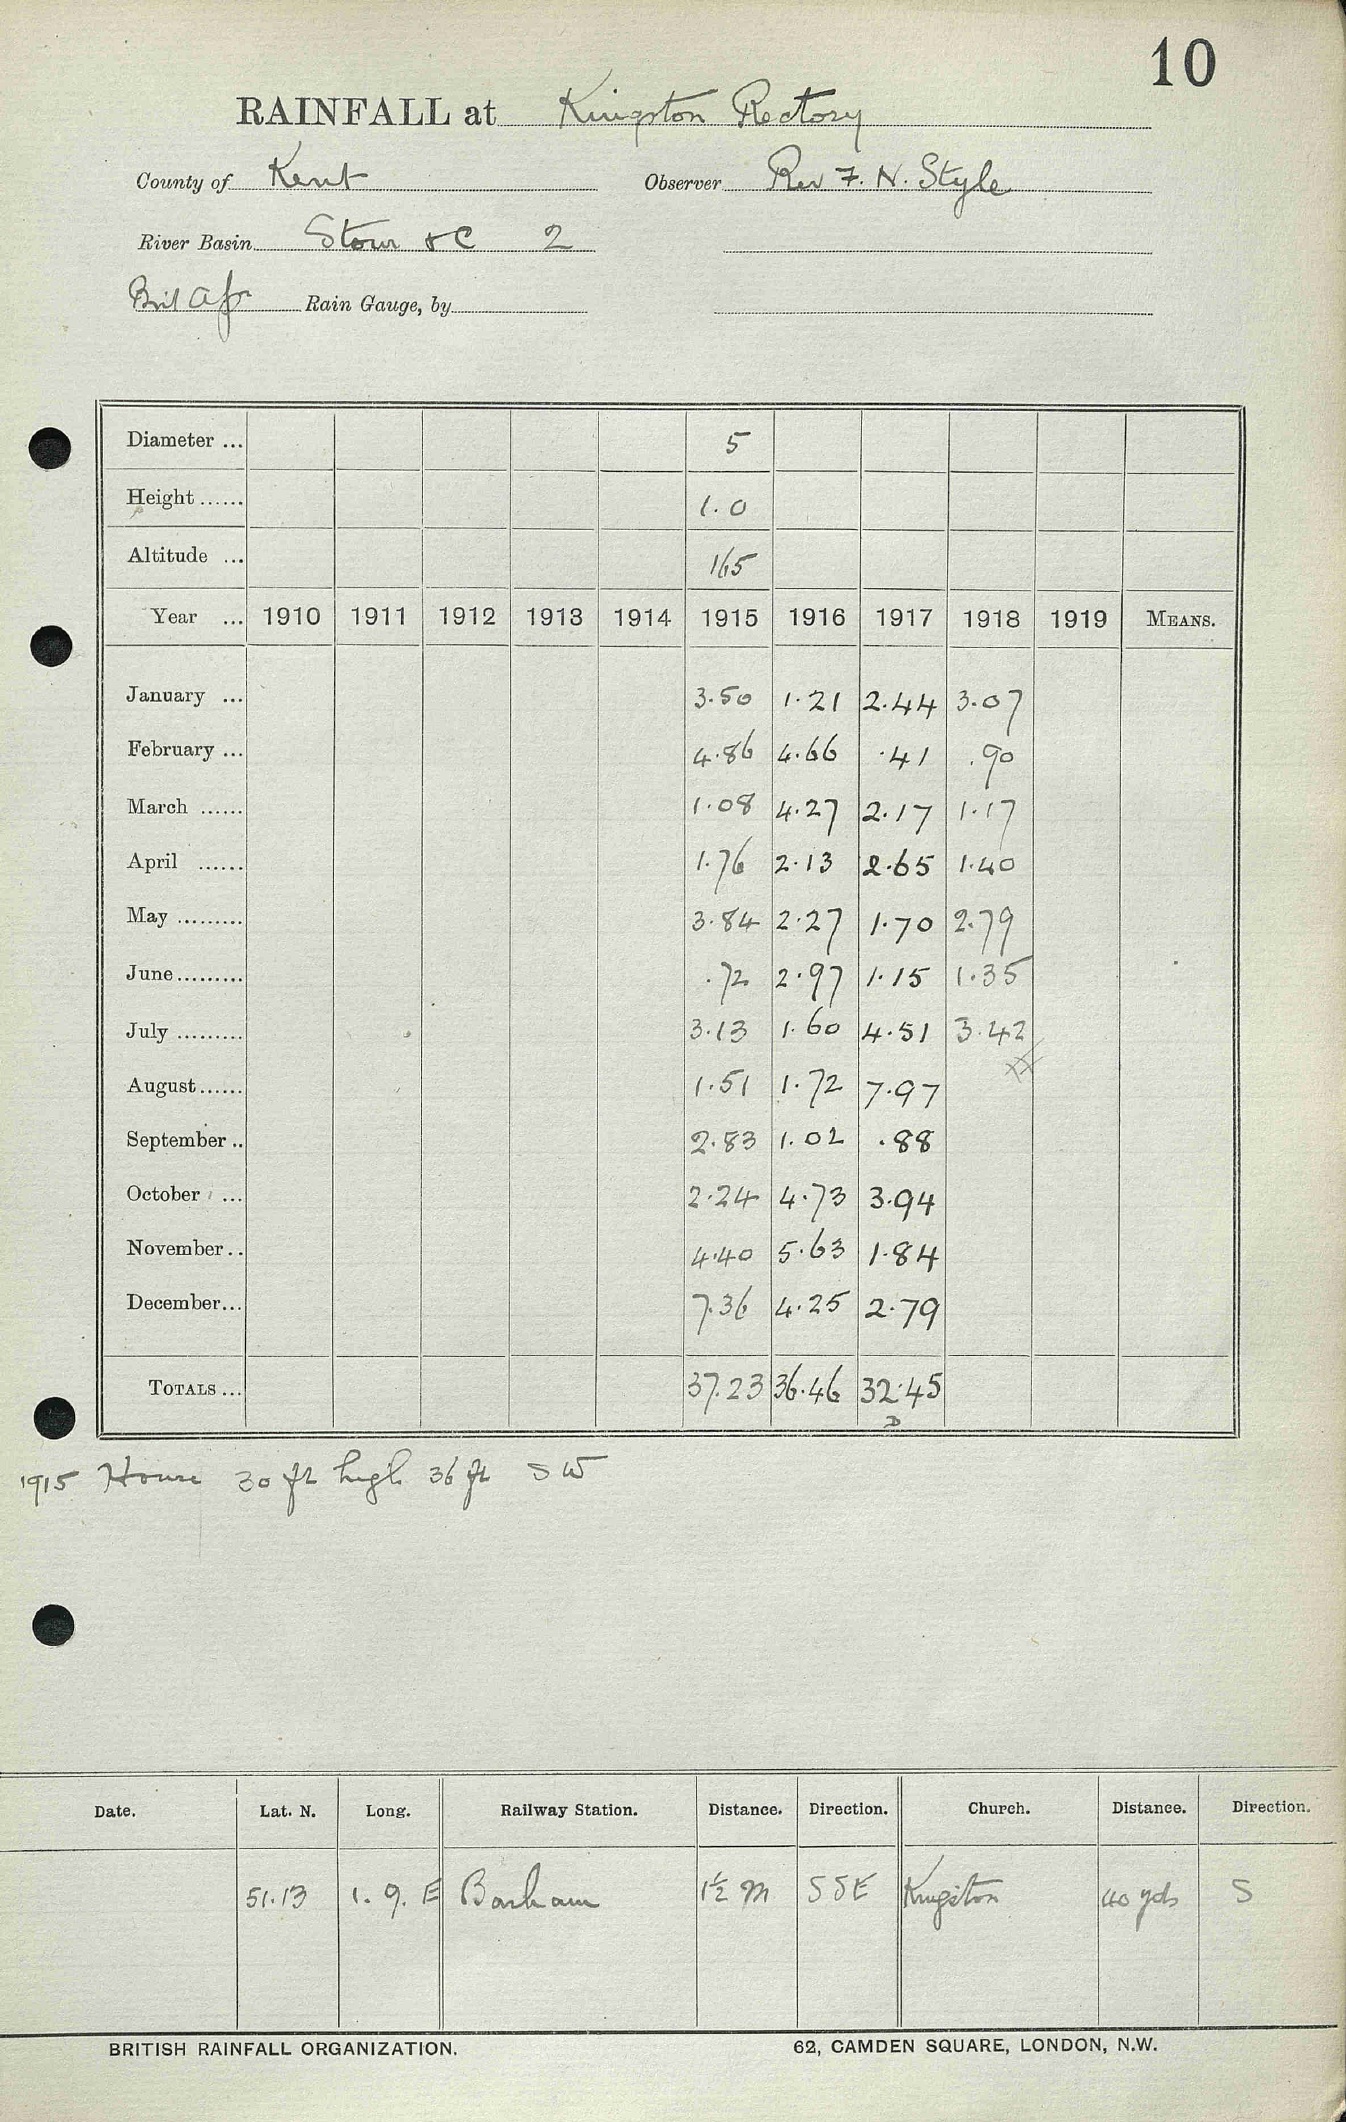 10
RAINFALL at Kingston Rectory
County of Kent Observer Rev F. N. Style
River Basin Stour &c 2
Brit Ass Rain Gauge, by
Diameter ... 5
Height ...... 1.0
Altitude ... 165
Year ... 1910 1911 1912 1913 1914 1915 1916 1917 1918 1919 MEANS.
January ... 3.50 1.21 2.44 3.07
February ... 4.86 4.66 .41 .90
March ...... 1.08 4.27 2.17 1.17
April ...... 1.76 2.13 2.65 1.40
May ......... 3.84 2.27 1.70 2.79
June ......... .72 2.97 1.15 1.35
July ......... 3.13 1.60 4.51 3.42
August ...... 1.51 1.72 7.97
September .. 2.83 1.02 .88
October ... 2.24 4.73 3.94
November .. 4.40 5.63 1.84
December ... 7.36 4.25 2.79
TOTALS ... 37.23 36.46 32.45
D
1915 House 30 ft high 36 ft SW
Date. Lat. N. Long. Railway Station. Distance. Direction. Church. Distance. Direction.
51.13 1. 9. E Barham 1½ m SSE Kingston 40 yds S
BRITISH RAINFALL ORGANIZATION. 62, CAMDEN SQUARE, LONDON, N.W.